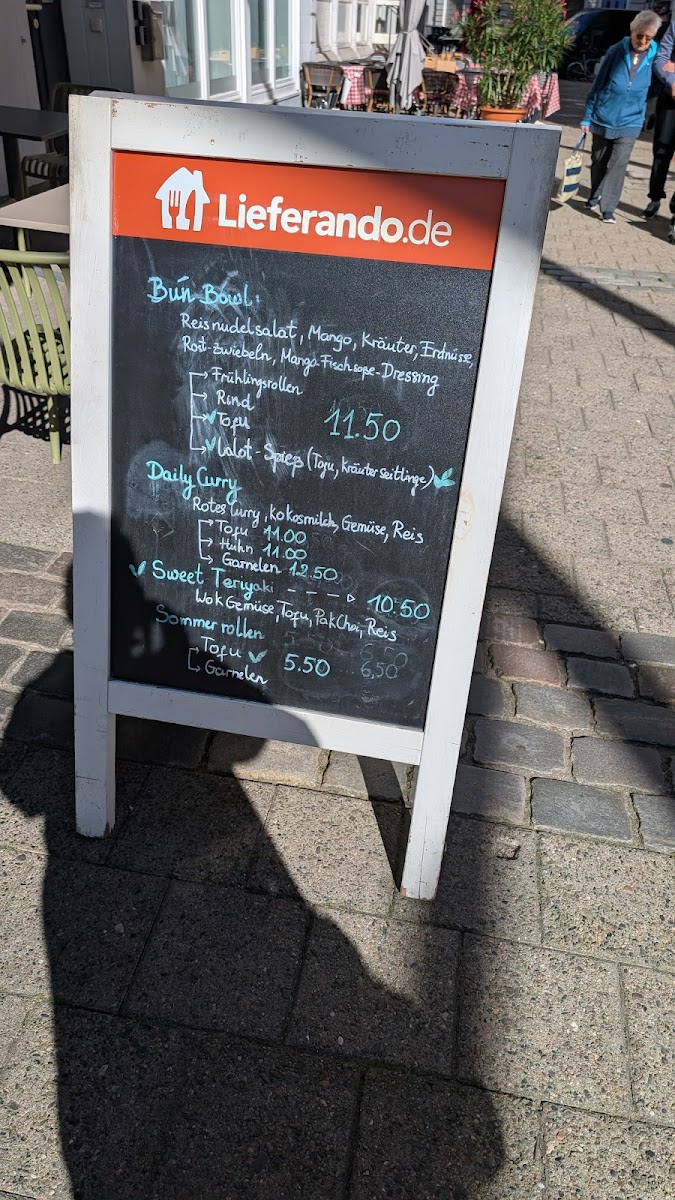 Lieferando.de
Bún Bowl:
Reisnudelsalat, Mango, Kräuter, Erdnüsse,
Röst-zwiebeln, Mango-Fischsope-Dressing
Frühlingsrollen
Rind
Tofu 11.50
Lalot-Spieß (Tofu, Kräuterseitlinge)
Daily Curry
Rotes Curry, Kokosmilch, Gemüse, Reis
Tofu 11.00
Huhn 11.00
Garnelen 12.50
Sweet Teriyaki 10.50
Wok Gemüse, Tofu, Pak Choi, Reis
Sommerrollen
Tofu 5.50
Garnelen 6,50